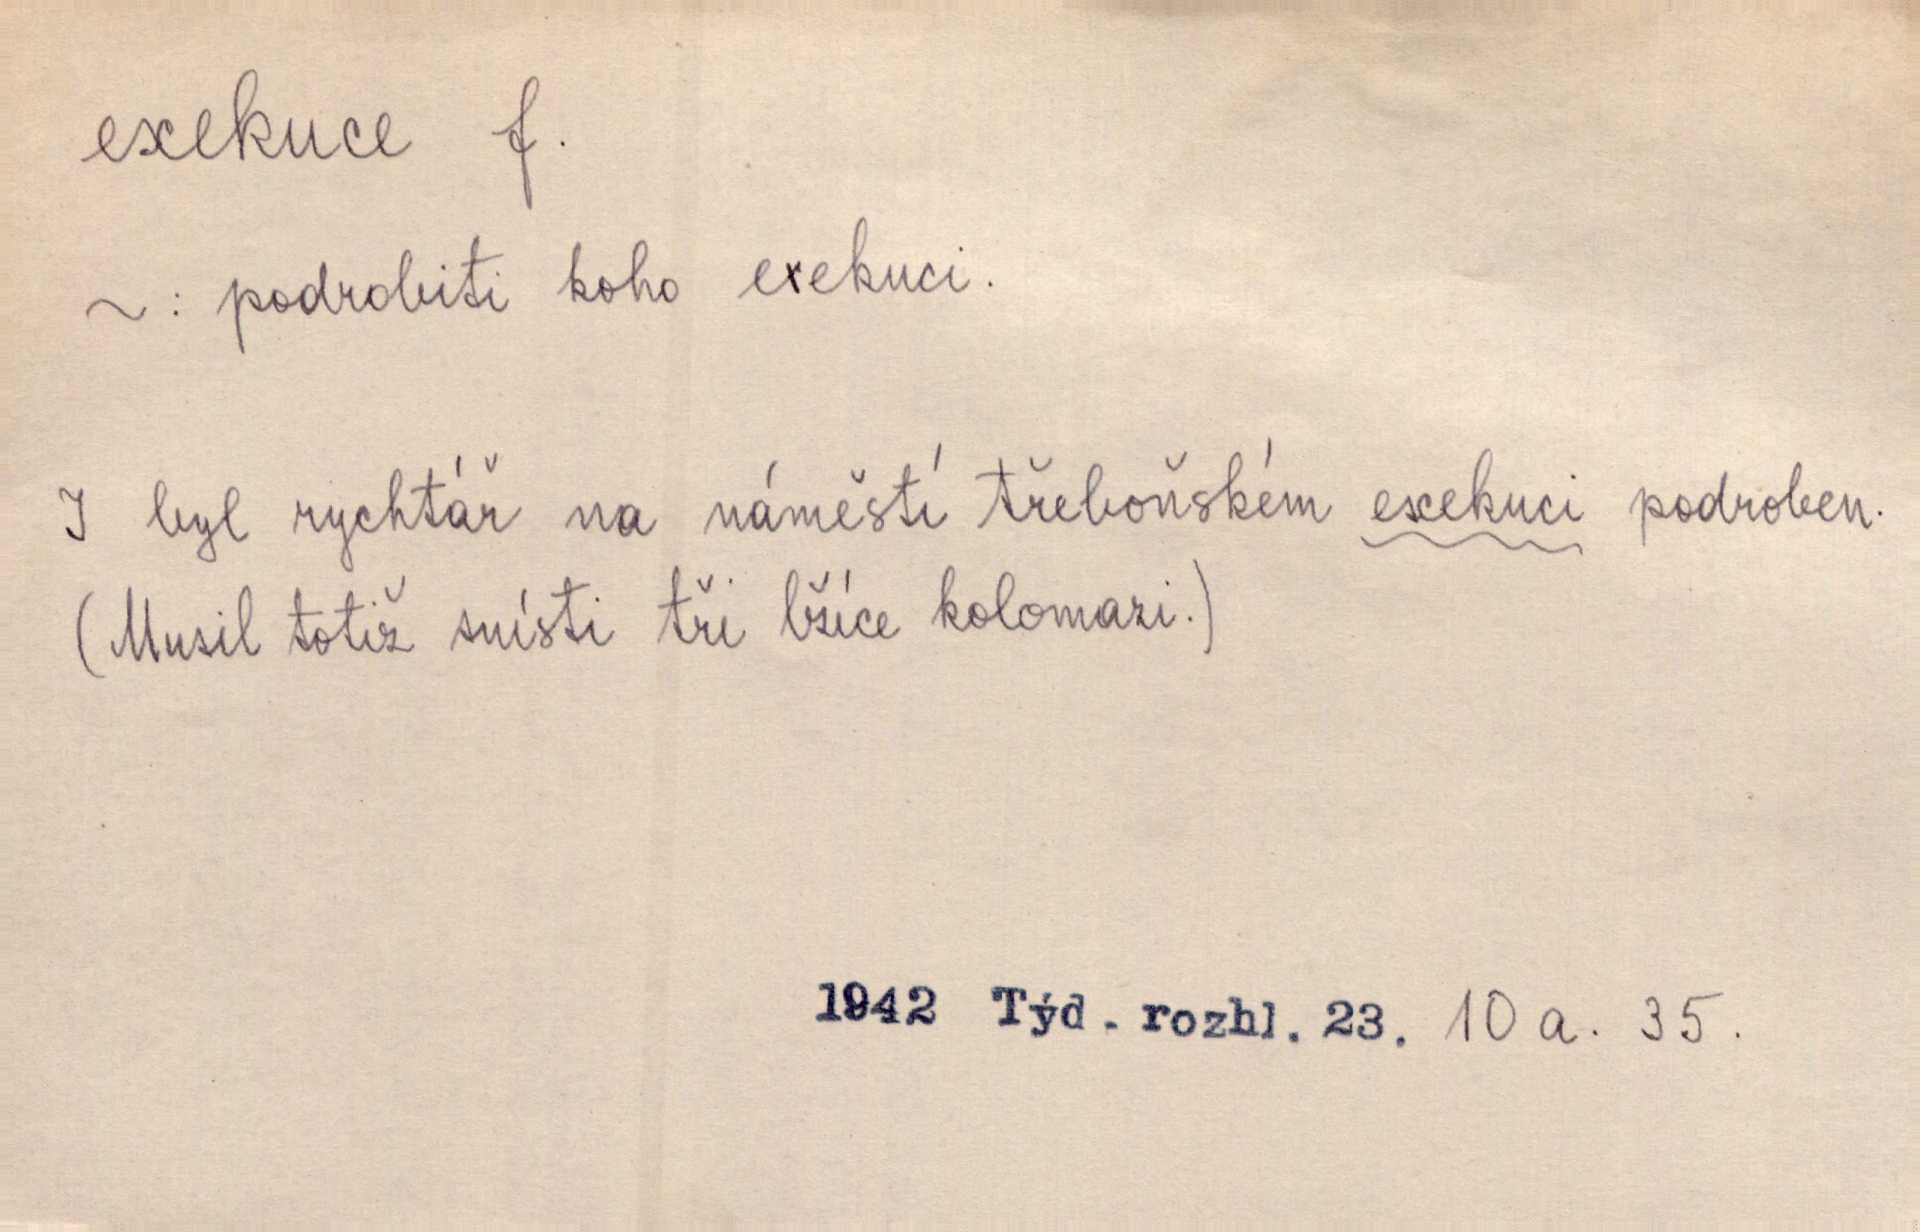 exekuce f.
~: podrobiti koho exekuci.
I byl rychtář na náměstí třeboňském exekuci podroben.
(Musil totiž snísti tři lžíce kolomazi.)
1942 Týd. rozhl. 23. 10 a. 35.